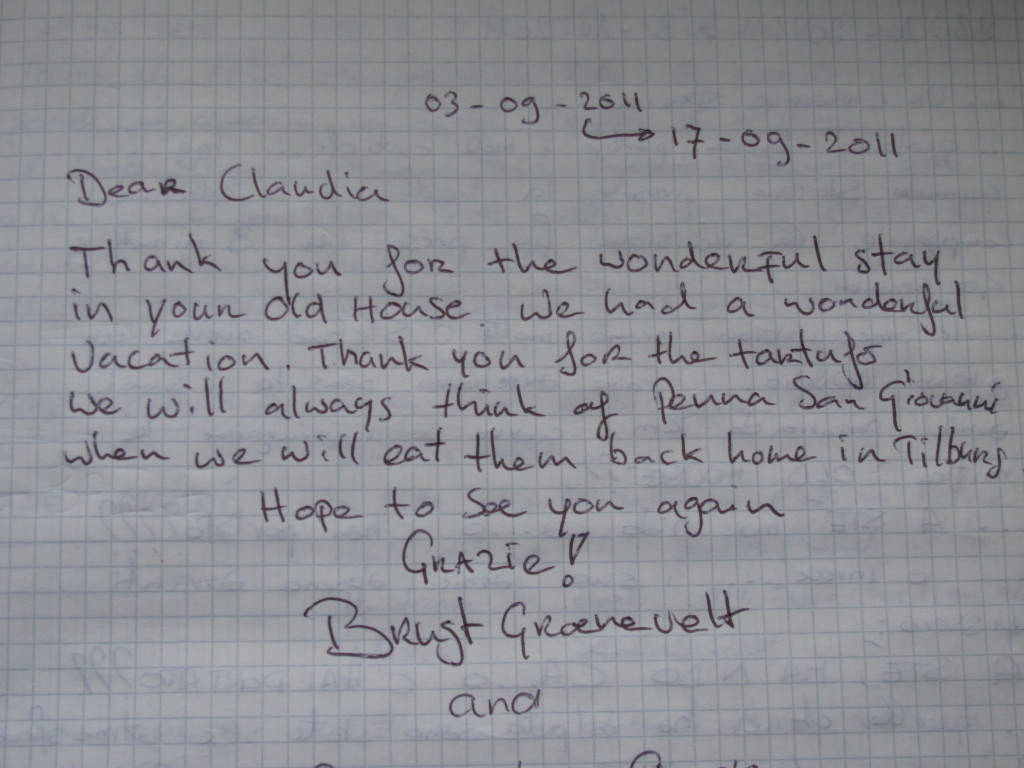 03-09-2011
→ 17-09-2011
Dear Claudia
Thank you for the wonderful stay
in your old House. We had a wonderful
vacation. Thank you for the tartufo
we will always think of Penna San Giovanni
when we will eat them back home in Tilburg
Hope to see you again
GRAZie!
Brugt Groenevelt
and